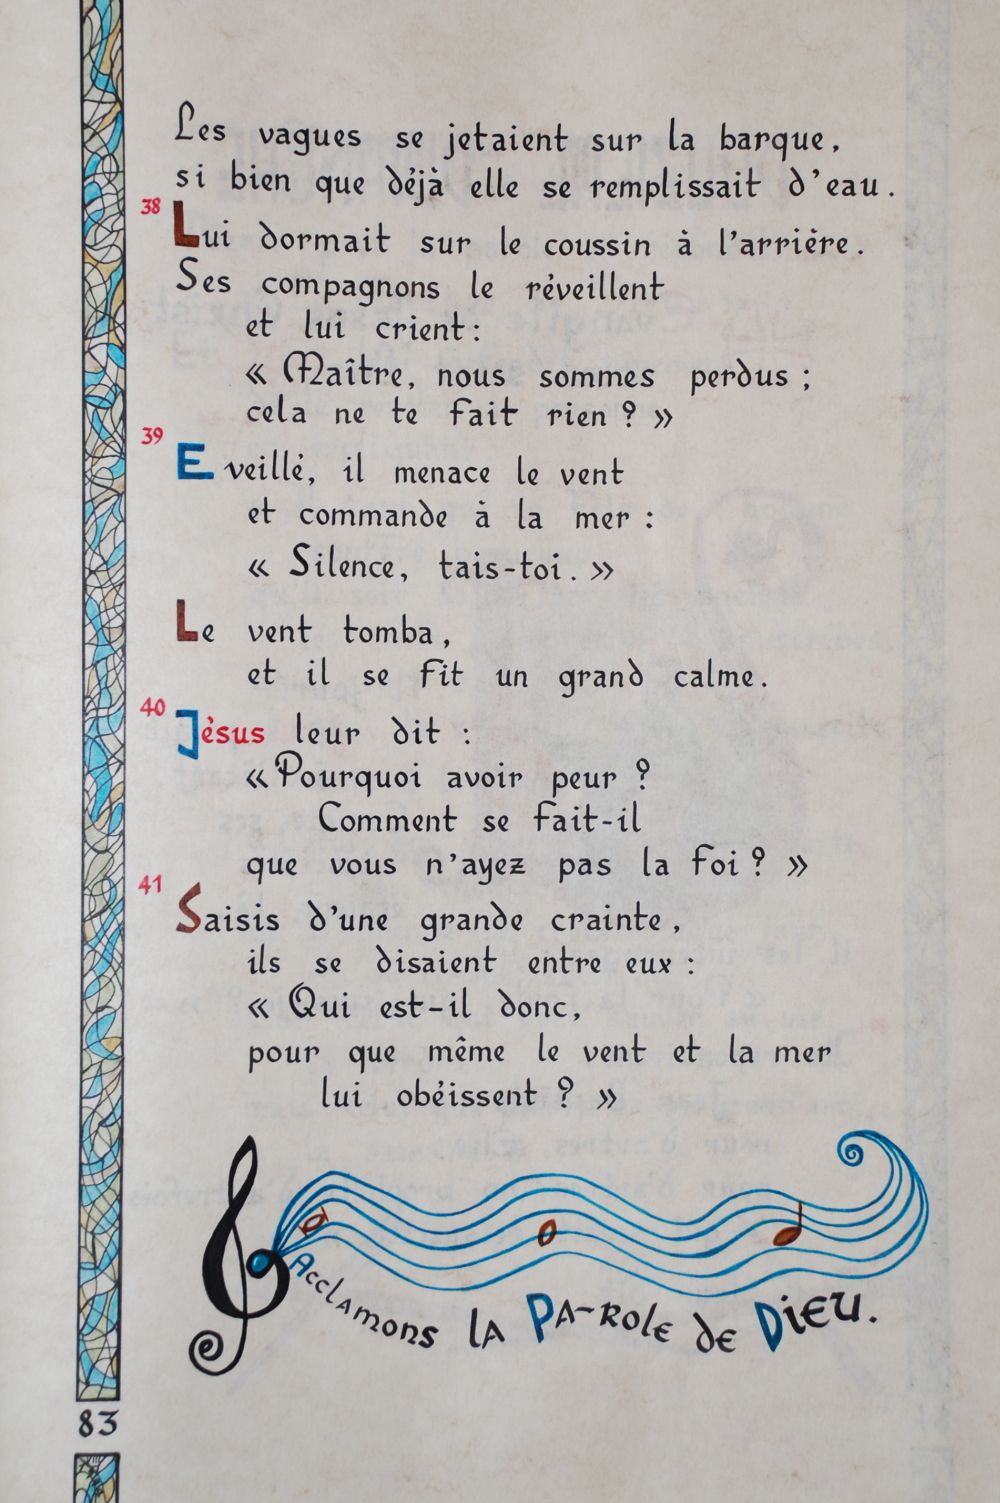 Les vagues se jetaient sur la barque,
si bien que déjà elle se remplissait d'eau.
38
Lui dormait sur le coussin à l'arrière.
Ses compagnons le réveillent
et lui crient :
« Maître, nous sommes perdus ;
cela ne te fait rien ? »
39
Eveillé, il menace le vent
et commande à la mer :
« Silence, tais-toi. »
Le vent tomba,
et il se fit un grand calme.
40
Jésus leur dit :
« Pourquoi avoir peur ?
Comment se fait-il
que vous n'ayez pas la foi ? »
41
Saisis d'une grande crainte,
ils se disaient entre eux :
« Qui est-il donc,
pour que même le vent et la mer
lui obéissent ? »
Acclamons la Pa-role de Dieu.
83